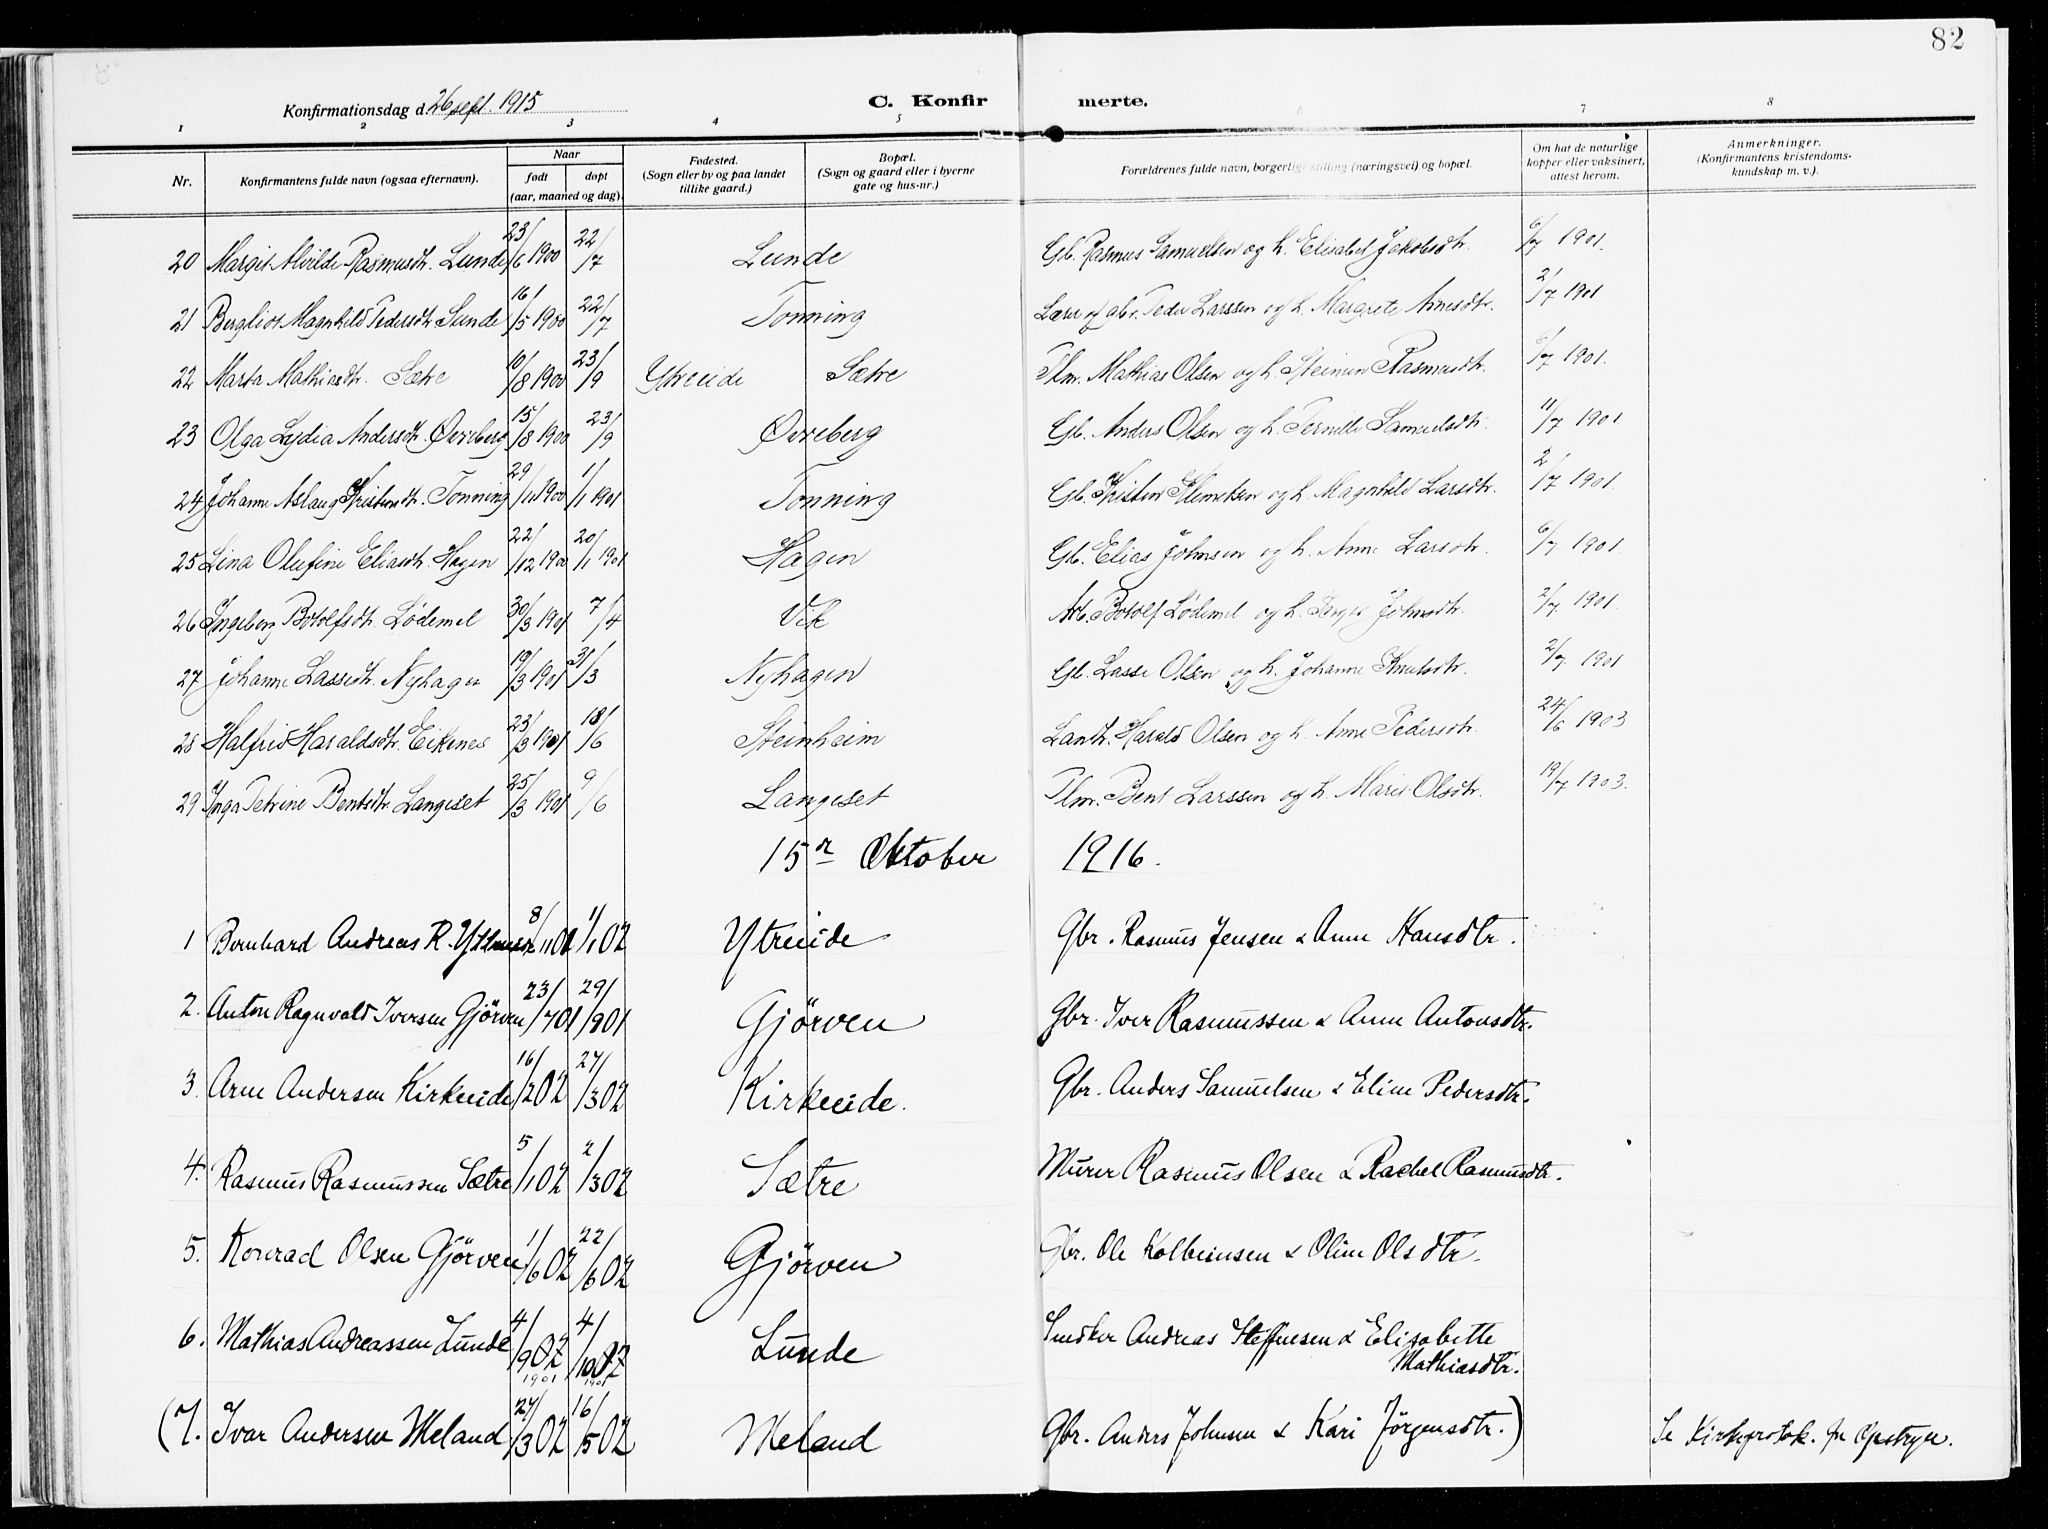 82
Konfirmationsdag d. 26 sept. 1915
C. Konfirmerte.
1 2 3 4 5 6 7 8
Nr.
Konfirmantens fulde navn (ogsaa efternavn).
Naar
født
døpt
(aar, maaned og dag).
Fødested.
(Sogn eller by og paa landet
tillike gaard.)
Bopæl.
(Sogn og gaard eller i byerne
gate og hus-nr.)
Forældrenes fulde navn, borgerlige stilling (næringsvei) og bopæl.
Om hat de naturlige
kopper eller vaksinert,
attest herom.
Anmerkninger.
(Konfirmantens kristendoms-
kundskap m. v.).
20 Margit Alvilde Rasmusdtr. Lunde 23/6 1900 22/7 Lunde Gb. Rasmus Samuelsen og h. Elisabet Jakobsdtr. 6/7 1901.
21 Bergliot Magnhild Pedersdtr. Lunde 16/5 1900 22/7 Tonning Lærer og gbr. Peder Larssen og h. Margrete Arnesdtr. 2/7 1901
22 Marta Mathiasdtr. Sætre 10/8 1900 23/9 Ytreeide Sætre Plm. Mathias Olsen og h. Steinun Rasmusdtr. 6/7 1901.
23 Olga Lydia Andersdtr. Øvreberg 15/8 1900 23/9 Øvreberg Gb. Anders Olsen og h. Pernille Samuelsdtr. 11/7 1901
24 Johanne Aslaug Kristendtr. Tonning 29/11 1900 1/1 1901 Tonning Gb. Kristen Klemetsen og h. Magnhild Larsdtr. 2/7 1901.
25 Lina Olufine Eliasdtr. Hagen 22/12 1900 20/1 1901 Hagen Gb. Elias Johnsen og h. Anne Larsdtr. 6/7 1901.
26 Ingeborg Botolfsdtr. Lødemel 30/3 1901 7/4 Vik Arb. Botolf Lødemel og h. Johnsdtr. 2/7 1901.
27 Johanne Lassedtr. Nyhagen 19/3 1901 31/3 Nyhagen Gb. Lasse Olsen og h. Johanne Knutsdtr. 2/7 1901
28 Halfrid Haraldsdtr. Eikenes 23/3 1901 18/6 Steinheim Landh. Harald Olsen og h. Anne Pedersdtr. 24/6 1903
29 Inga Petrine Bentsdtr. Langeset 25/3 1901 9/6 Langeset Plm. Bent Larssen og h. Marie Olsdtr. 19/7 1903.
15de Oktober 1916.
1 Bernhard Andreas R. Ytreeide 8/11 01 1/1 02 Ytreeide Gbr. Rasmus Jensen & Anne Hansdtr.
2. Anton Ragnvald Iversen Gjörven 23/7 01 29/9 01 Gjörven Gbr. Iver Rasmussen & Anne Antonsdtr.
3. Arne Andersen Kirkeeide 16/2 02 27/3 02 Kirkeeide. Gbr. Anders Samuelsen & Eline Pedersdtr.
4. Rasmus Rasmussen Sætre 5/1 02 2/3 02 Sætre Murer Rasmus Olsen & Rachel Rasmusdtr.
5. Konrad Olsen Gjörven 1/6 02 22/6 02 Gjörven Gbr. Ole Kolbeinsen & Oline Olsdtr.
6. Mathias Andreassen Lunde 4/9 02 1901 4/10 02 1901 Lunde Snedker Andreas Steffensen & Elisabette
Mathiasdtr.
(7. Ivar Andersen Meland 27/3 02 16/5 02 Meland Gbr. Anders Johnsen & Kari Jörgensdtr.) Se Kirkeprotok. for Opstryn.